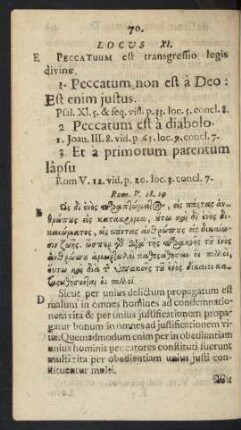 70.
LOCUS XI.
E PECCATUUM est transgressio legis
divinæ.
1. Peccatum non est à Deo:
Est enim justus.
Psal. XI. 5. & seq. vid. p. 33. loc. 5. concl. 8.
2 Peccatum est à diabolo.
1. Joan. III. 8. vid. p. 61. loc. 9. concl. 7.
3 Et à primorum parentum
lapsu
Rom V. 12. vid. p. 20. loc. 3. concl. 7.
Rom. V. 18. 19
Ὡς δι ἑνὸς παραπτώματος, εἰς πάντας ἀν-
θρώπες εἰς κατακριμα, ὕτω καὶ δι ἑνὸς δι-
καιώματος, εἰς πάντας ἀνθρώπες εἰς δικαίω-
σιν ζωῆς. ὥσπερ
ἀνθρώπου ἁμαρτωλοὶ οἱ πολλοὶ,
ὕτω
οἱ πολλοί.
D Sicut per unius delictum propagatum est
malum in omnes homines ad condemnatio-
nem ita & per unius justificationem propa-
gatur bonum in omnes ad justificationem vi-
tæ. Quemadmodum enim per in obedientiam
unius hominis peccatores constituti fuerunt
multi: ita per obedientiam unius justi con-
stituentur multi.